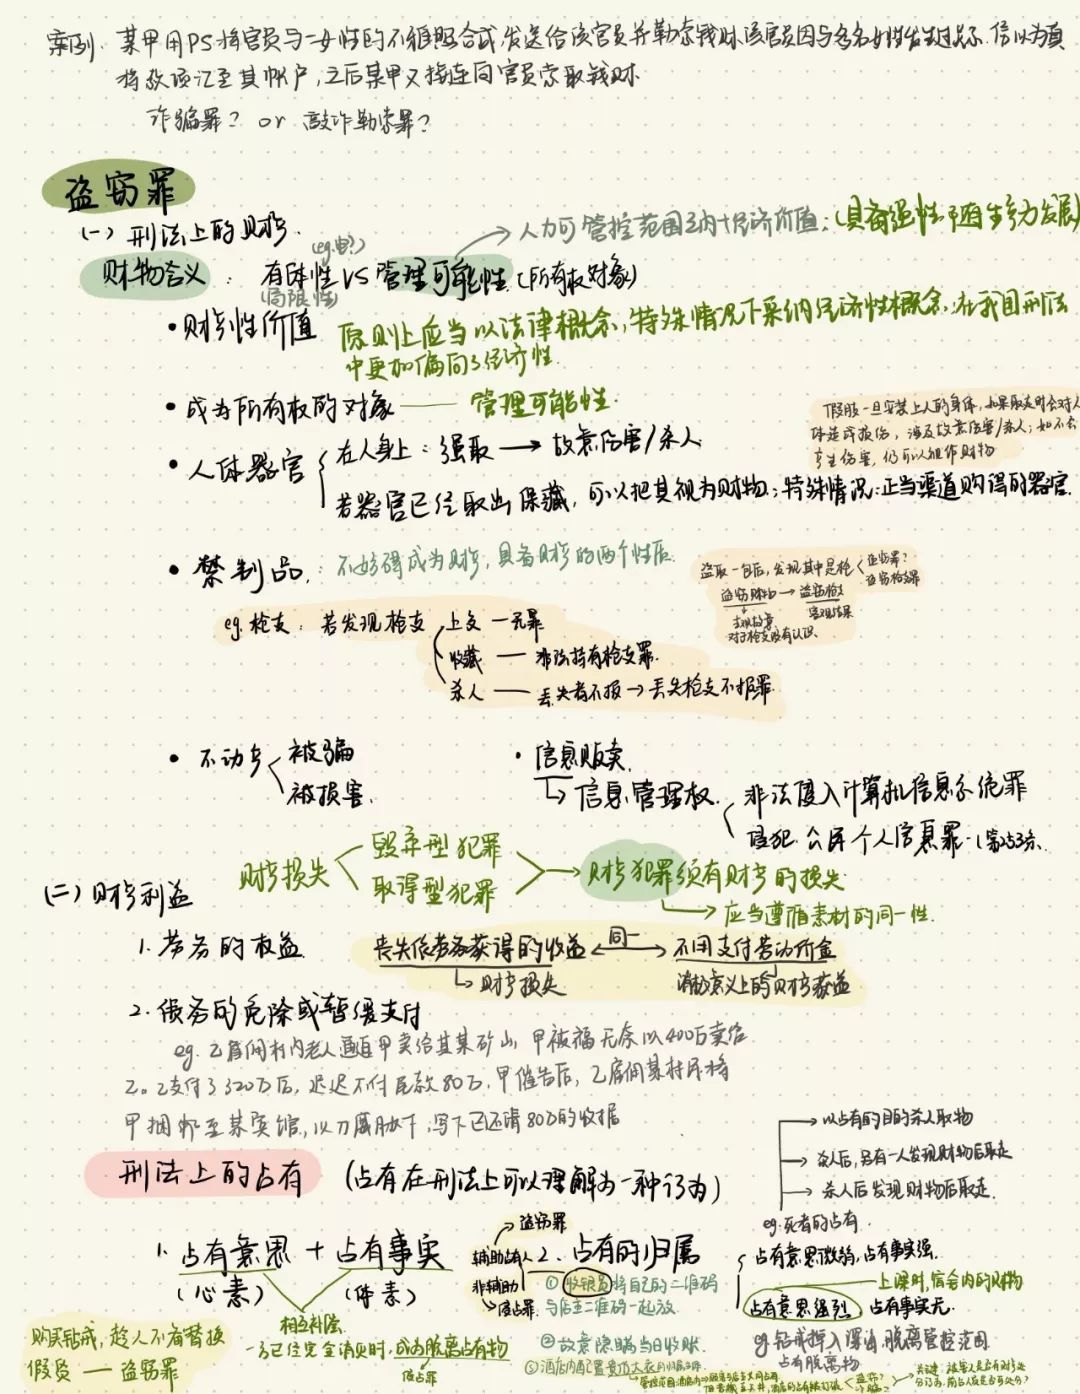 案例. 某甲用PS将官员与一女性的不雅照合成,发送给该官员并勒索钱财.该官员因与多名女性发生过关系.信以为真
将款项汇至其帐户,之后某甲又接连向官员索取钱财.
诈骗罪? or 敲诈勒索罪?
盗窃罪
(一) 刑法上的财物.
人力可管控范围之内+经济价值:(具有适性,可随生产力发展)
(eg.电?)
财物含义: 有体性 VS 管理可能性.(所有权对象)
(局限性)
• 财物性价值 原则上应当以法律概念,特殊情况下采纳经济性概念.在我国刑法
中更加偏向于经济性.
• 成为所有权的对象 —— 管理可能性.
假肢一旦安装上人的身体,如果取走时会对人
体造成损伤,涉及故意伤害/杀人;如不会
产生伤害,仍可以视作财物
• 人体器官
在人身上:强取 → 故意伤害/杀人
若器官已经取出保藏,可以把其视为财物.;特殊情况:正当渠道购得的器官.
• 禁制品.: 不妨碍成为财物,具备财物的两个性质.
盗取一包后,发现其中是枪
盗窃罪?
盗窃枪支罪
盗窃财物 → 盗窃枪支
主观故意 客观结果
对于枪支没有认识.
eg.枪支: 若发现枪支 上交 — 无罪
收藏 — 非法持有枪支罪.
杀人 — 丢失者不报 → 丢失枪支不报罪.
• 不动产 被骗
被损害.
• 信息贩卖.
信息管理权. 非法侵入计算机信息系统罪
侵犯公民个人信息罪-(第253条.
财产损失 毁弃型犯罪
取得型犯罪
财产犯罪须有财产的损失.
应当遵循素材的同一性.
(二) 财产利益
1. 劳务的权益. 丧失依劳务获得的收益 ←同一→ 不用支付劳动价金
财产损失 消极意义上的财产获益
2. 债务的免除或暂缓支付
eg. 乙雇佣村内老人逼迫甲卖给其某矿山,甲被逼无奈以400万卖给
乙。乙支付了320万后,迟迟不付尾款80万,甲催告后,乙雇佣某村民将
甲捆绑至某宾馆,以刀威胁下,写下已还清80万的收据
刑法上的占有 (占有在刑法上可以理解为一种行为)
以占有的目的杀人取物
杀人后,另有一人发现财物后取走
杀人后发现财物后取走.
eg.死者的占有.
1. 占有意思 + 占有事实
(心素) (体素)
相互补强
一方已经完全消灭时,成为脱离占有物
侵占罪
购买钻戒,趁人不备替换
假货 —— 盗窃罪
盗窃罪
辅助占有人
非辅助
侵占罪.
2. 占有的归属
① 收银员将自己的二维码
与店主二维码一起放.
② 故意隐瞒当日收账.
占有意思微弱,占有事实强.
上课时,宿舍内的财物
占有意思强烈,占有事实无.
eg.钻戒掉入深海,脱离管控范围.
占有脱离物